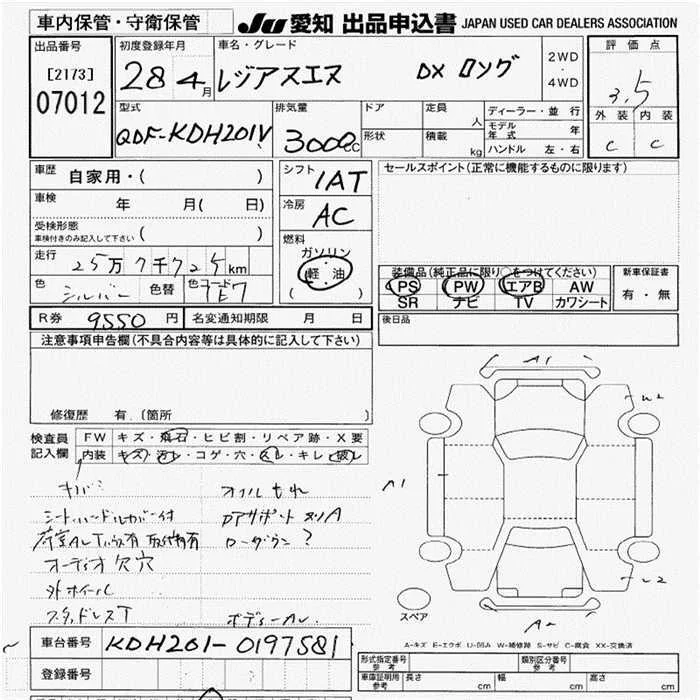 車内保管・守衛保管
JU 愛知 出品申込書 JAPAN USED CAR DEALERS ASSOCIATION
出品番号
[2173]
07012
初度登録年月
28 4月
車名・グレード
レジアスエース DX ロング
2WD
・
4WD
評価点
3.5
外装 内装
C C
型式
QDF-KDH201V
排気量
3000cc
ドア
形状
定員 人
積載 kg
ディーラー・並行
モデル年式 年
ハンドル 左・右
車歴 自家用・( )
車検 年 月( 日)
受検形態
車検付きのみ記入して下さい ( )
走行 25万7千725km
色 シルバー 色替 色コード 1E7
シフト 1AT
冷房 AC
燃料
ガソリン
軽油
( )
セールスポイント(正常に機能するものに限ります)
装備品(純正品に限り○をつけてください)
PS PW エアB AW
SR ナビ TV カワシート
新車保証書
有・無
R券 9550円 名変通知期限 月 日
後日品
注意事項申告欄(不具合内容等は具体的に記入して下さい)
修復歴 有.(箇所
検査員
記入欄
FW キズ・飛石・ヒビ割・リペア跡・X要
内装 キズ・汚レ・コゲ・穴・スレ・キレ・破レ
A1
W2
A1
A2
スペア
シートハンドルカバー付
オイルもれ
オーディオ欠穴
外ホイール
スタッドレスT
A-キズ E-エクボ U-凹み W-補修跡 S-サビ C-腐食 XX-交換済
車台番号 KDH201-0197581
登録番号
形式指定番号
参考
類別区分番号
参考
車庫証明用
参考
長さ cm 幅 cm 高さ cm